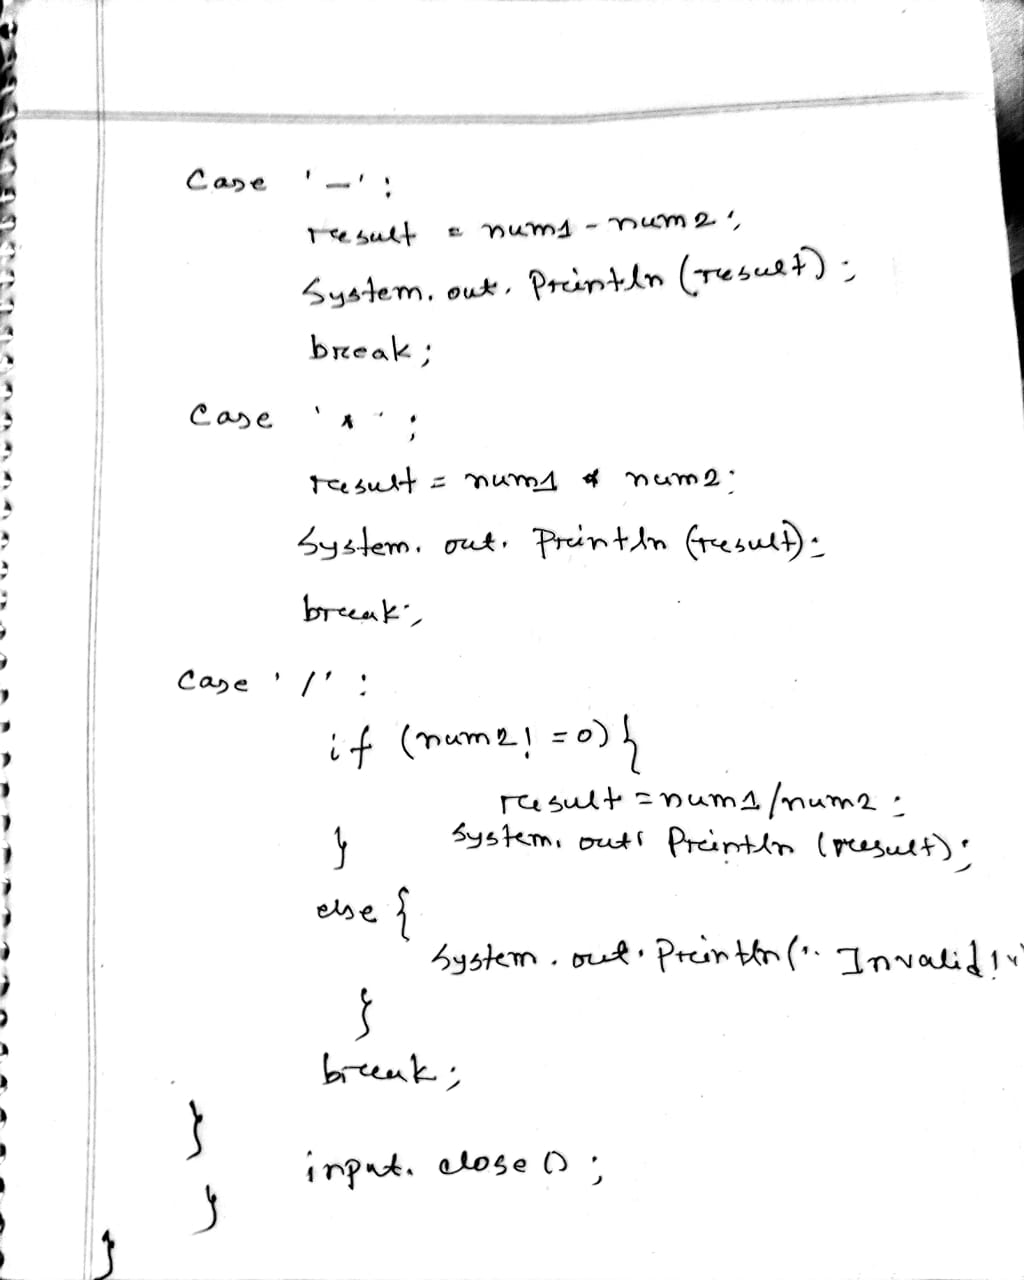 Case '-':
result = num1 - num2;
System.out.Println(result);
break;
Case '*':
result = num1 * num2;
System.out.Println(result);
break;
Case '/':
if (num2! =0){
result=num1/num2;
} System.out.Println(result);
else {
System.out.Println(" Invalid!"
}
break;
}
input.close();
}
}